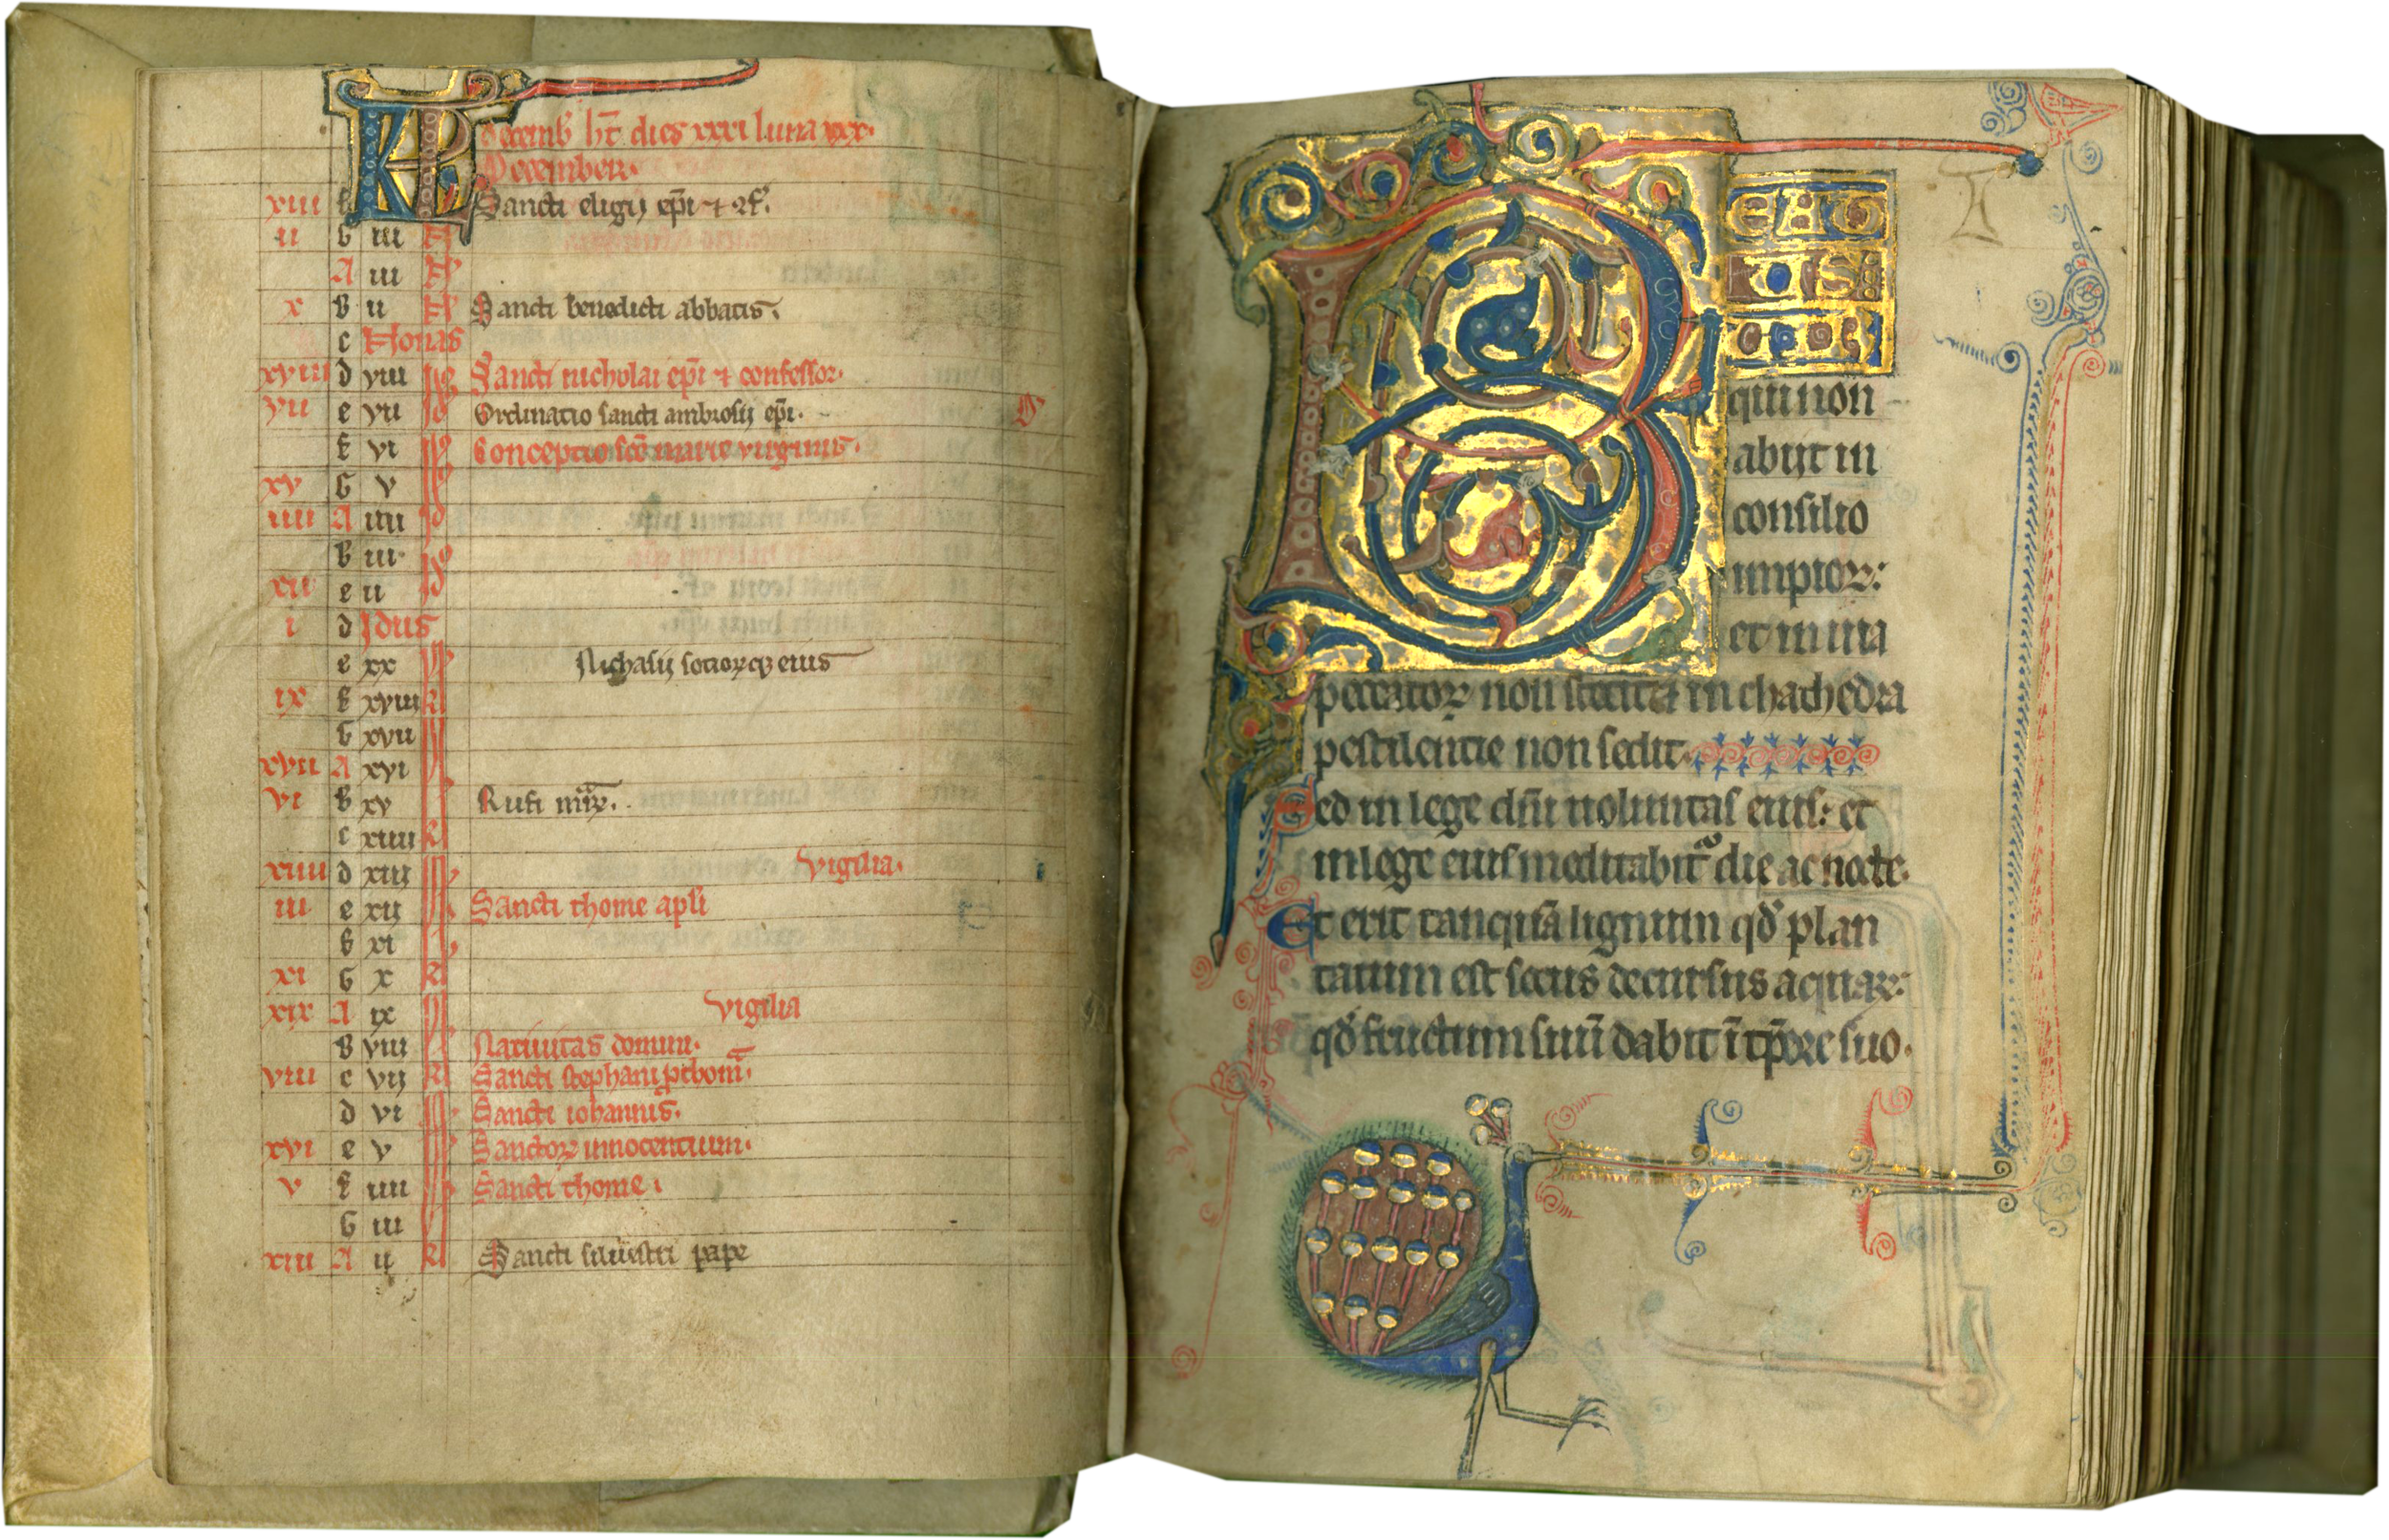 KL decemb' ht dies xxxi luna xxx.
Decembeꝛ.
xiii f Sancti eligij epi ⁊ ꝯf.
ii G iiii N
A iii N
x b ii N Sancti benedicti abbatis.
c Nonas
xviii d viii Id Sancti nicholai epi ⁊ confessor.
vii e vii Id Ordinatio sancti ambrosij epi.
f vi Id Conceptio sce marie virginis.
xv G v Id
iiii A iiii Id
b iii Id
xii c ii Id
i d Idus
e xx Nichasij sociorꝝqꝫ eius
ix f xviii kl
G xvii
xvii A xvi
vi b xv Rufi mr̃.
c xiiii kl
xiiii d xiii vigilia.
iii e xii Sancti thome apli
f xi
xi G x kl
xix A ix vigilia
b viii Natiuitas domini.
viii c vii kl Sancti stephani
d vi Sancti iohannis.
xvi e v Sanctoꝝ innocentium.
v f iiii Sancti thome.
G iii
xiii A ii kl Sancti siluestri pape
BEATUS
qui non
abijt in
consilio
impioꝝ:
et in uia
peccatoꝝ non stetit ⁊ in chathedra
pestilentie non sedit.
Sed in lege dn̄i uoluntas eius: et
in lege eius meditabit᷑ die ac nocte.
Et erit tanquā lignum qđ plan
tatum est secus decursus aquaꝝ:
qđ fructum suū dabit ī tp̄ore suo.